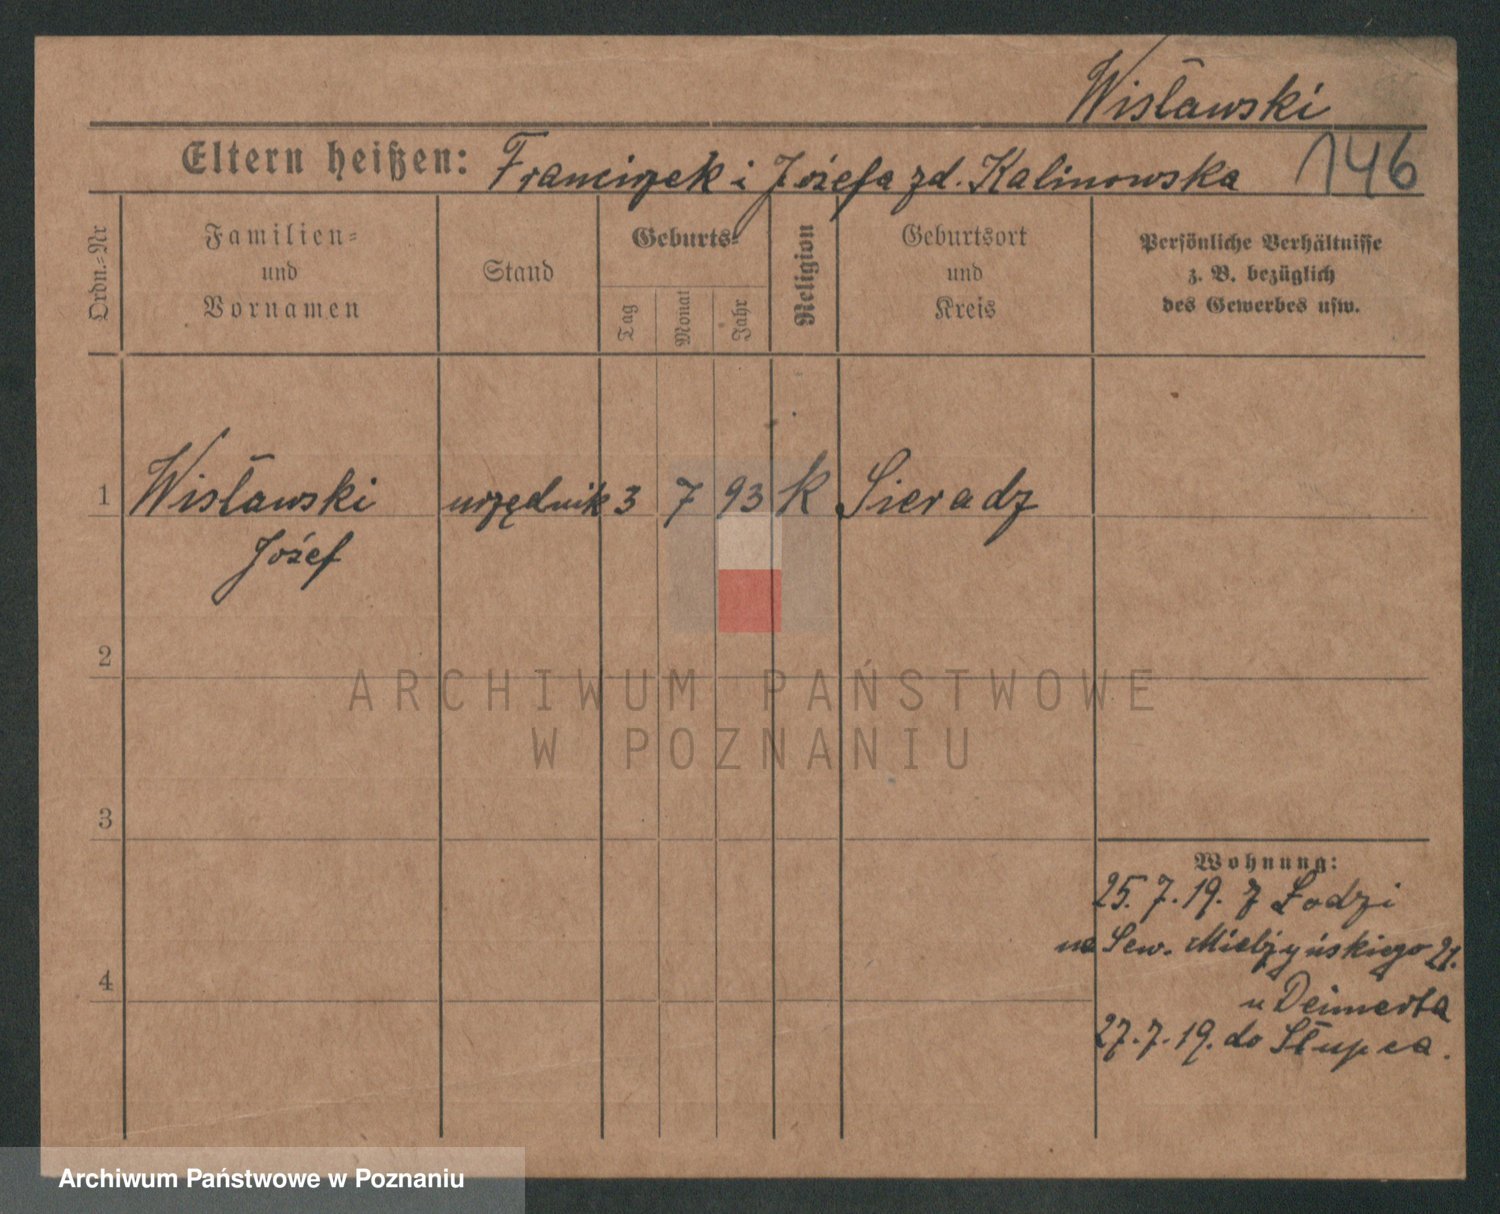 Wisławski
Eltern heißen: Franciszek i Józefa zd. Kalinowska 146
Ordn.-Nr
Familien-
und
Vornamen
Stand
Geburts-
Tag
Monat
Jahr
Religion
Geburtsort
und
Kreis
Persönliche Verhältnisse
z. B. bezüglich
des Gewerbes usw.
1 Wisławski urzędnik 3 7 93 k Sieradz
Józef
2
ARCHIWUM PAŃSTWOWE
W POZNANIU
3
Wohnung:
25.7.19. z Łodzi
na Sew. Mielżyńskiego 21.
4
u Deimerta
27.7.19. do Słupca.
Archiwum Państwowe w Poznaniu